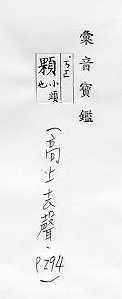 彙音寶鑑
顆 小頭也
(高上去聲, P294)